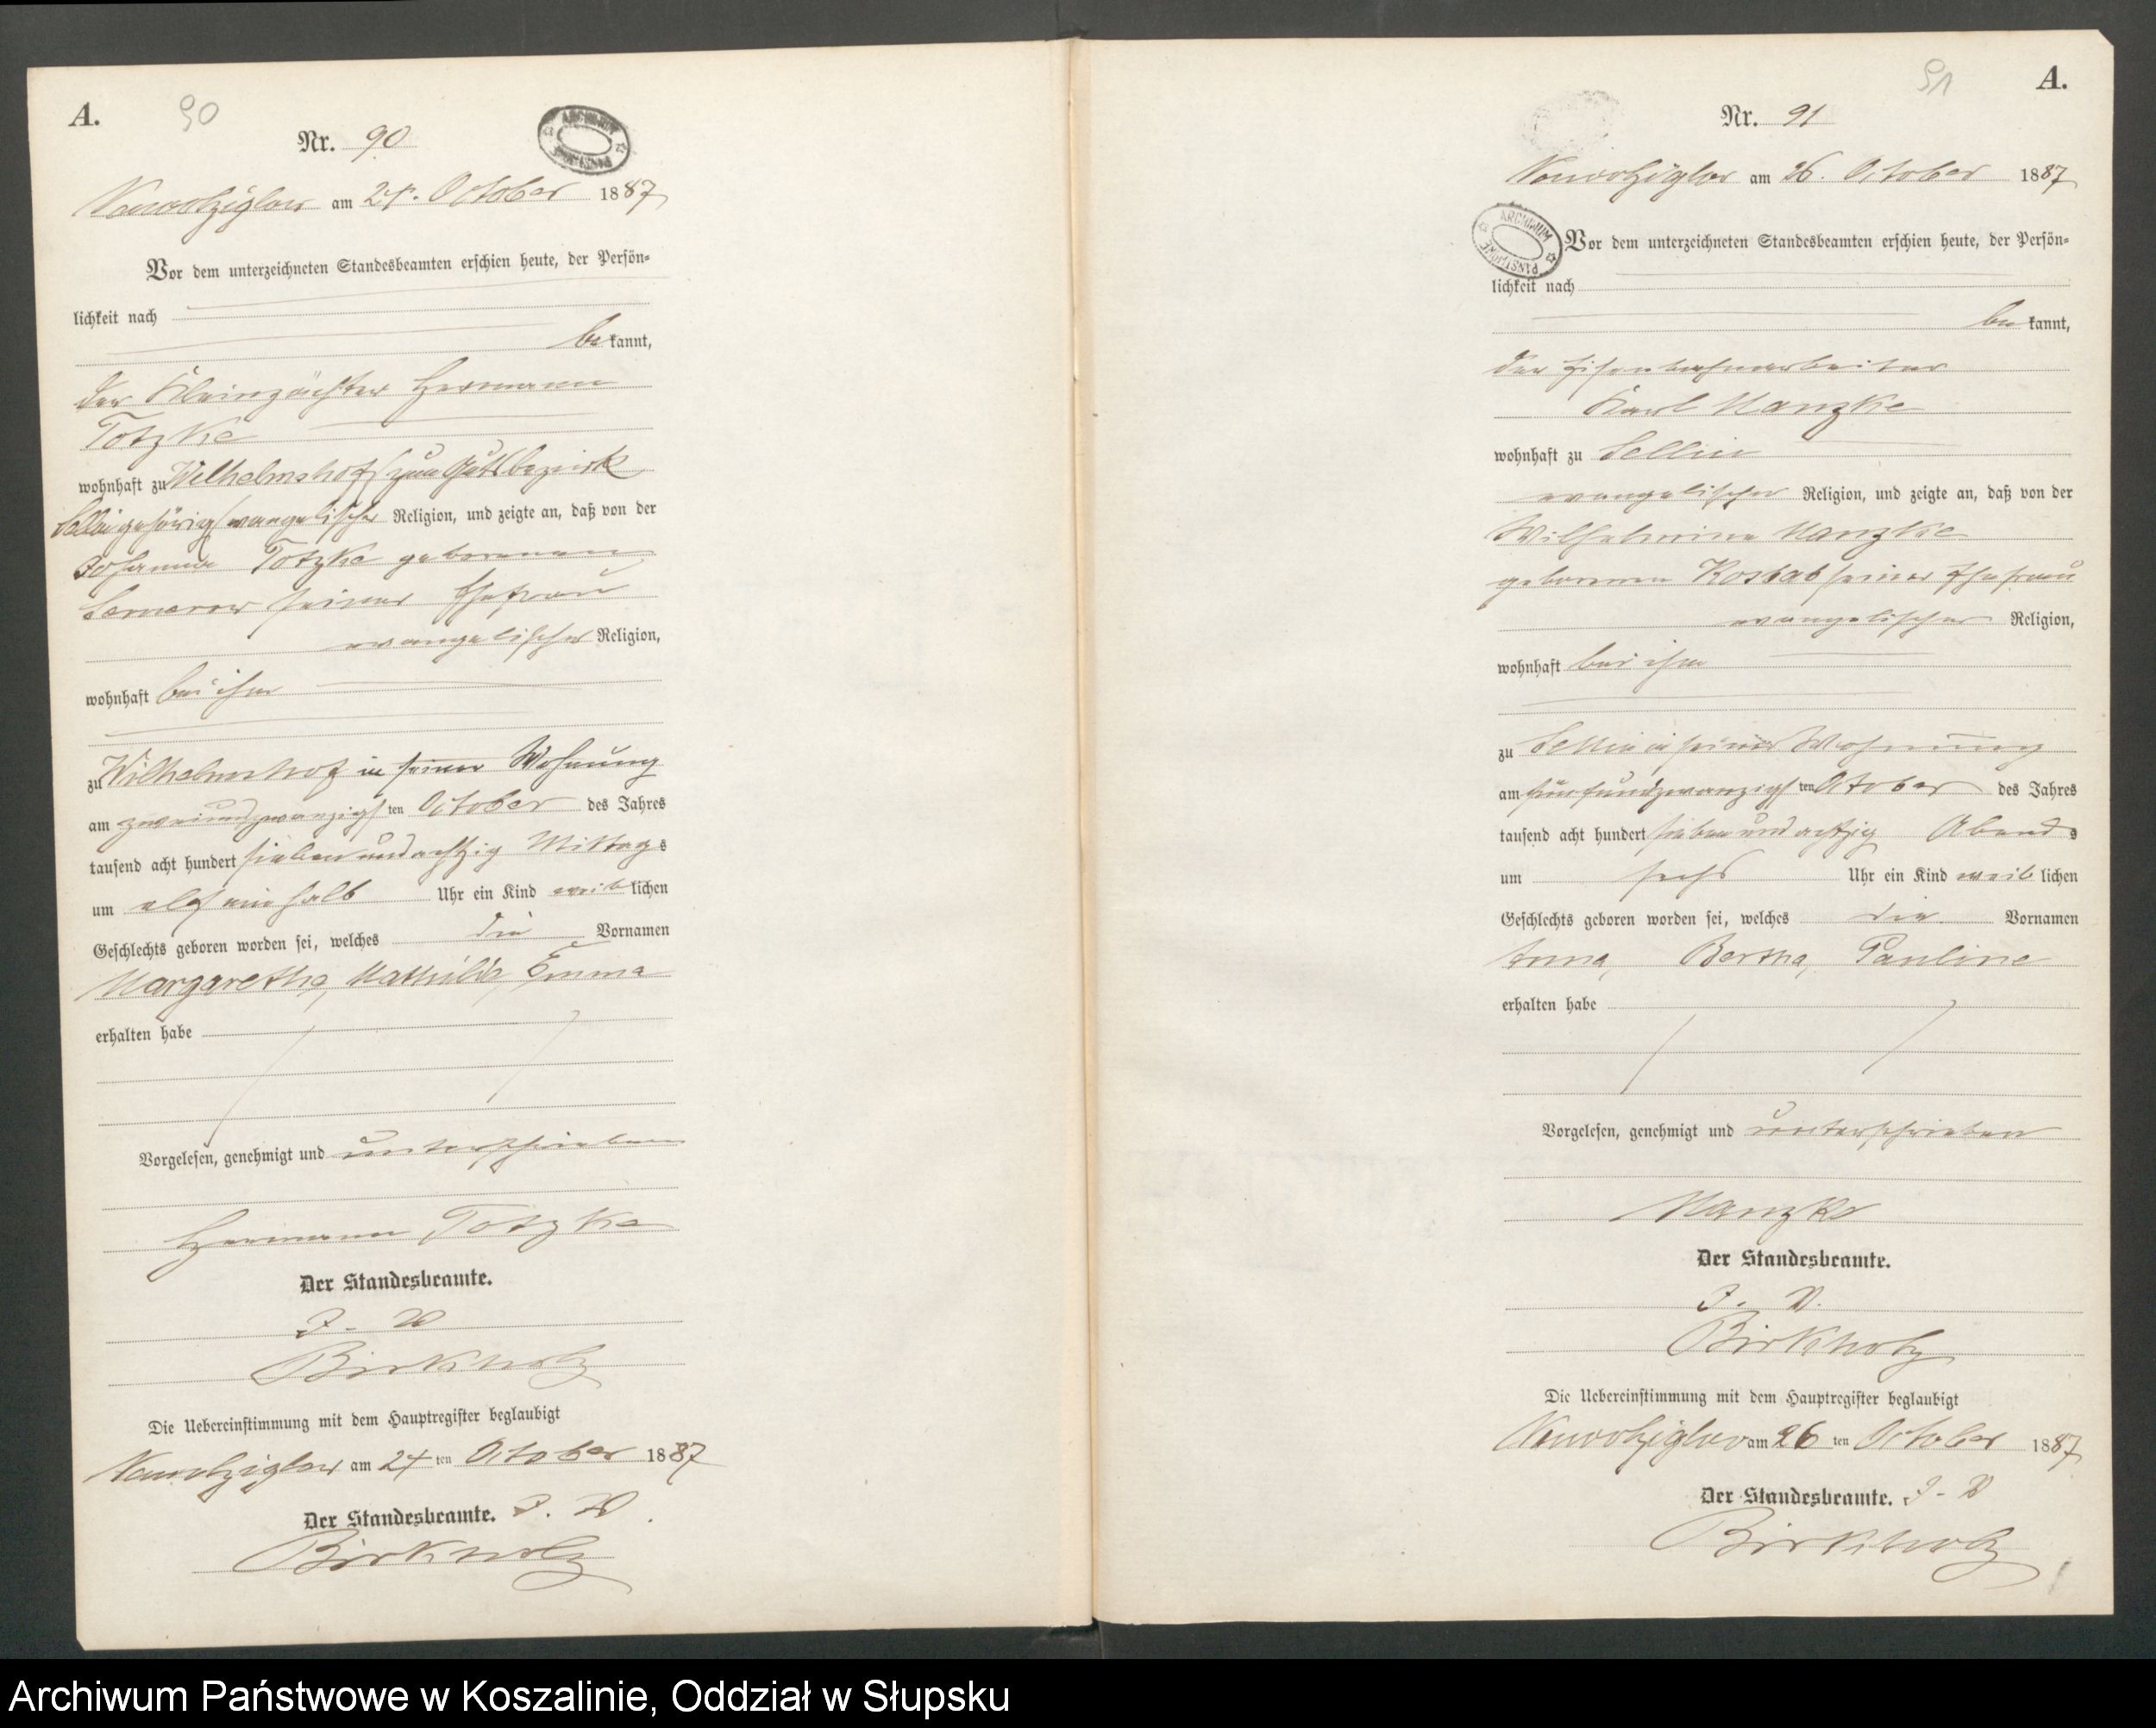 A.
90
Nr. 90
ARCHIWUM
PAŃSTWOWE
am 24. October 1887
Vor dem unterzeichneten Standesbeamten erschien heute, der Persön-
lichkeit nach
be kannt,
der Kleinpächter Hermann
Totzke
wohnhaft zu Wilhelmshof (zum Gutsbezirk
Sellin gehörig) evangelischer Religion, und zeigte an, daß von der
Johanna Totzke geborenen
seiner Ehefrau
evangelischer Religion,
wohnhaft bei ihm
zu Wilhelmshof in seiner Wohnung
am zweiundzwanzigsten October des Jahres
tausend acht hundert siebenundachtzig Mittags
um elf ein halb Uhr ein Kind weiblichen
Geschlechts geboren worden sei, welches die Vornamen
Margarethe, Mathilde, Emma
erhalten habe
Vorgelesen, genehmigt und unterschrieben
Hermann Totzke
Der Standesbeamte.
J. V.
Birkholz
Die Uebereinstimmung mit dem Hauptregister beglaubigt
am 24 ten October 1887
Der Standesbeamte. J. V.
Birkholz
91
A.
Nr. 91
am 26. October 1887
ARCHIWUM
PAŃSTWOWE
Vor dem unterzeichneten Standesbeamten erschien heute, der Persön-
lichkeit nach
be kannt,
der Eisenbahnarbeiter
Karl Manzke
wohnhaft zu Sellin
evangelischer Religion, und zeigte an, daß von der
Wilhelmine Manzke
geborenen Kosbab seiner Ehefrau
evangelischer Religion,
wohnhaft bei ihm
zu Sellin in seiner Wohnung
am fünfundzwanzigsten October des Jahres
tausend acht hundert siebenundachtzig Abends
um sechs Uhr ein Kind weiblichen
Geschlechts geboren worden sei, welches die Vornamen
Anna, Bertha, Pauline
erhalten habe
Vorgelesen, genehmigt und unterschrieben
Manzke
Der Standesbeamte.
J. V.
Birkholz
Die Uebereinstimmung mit dem Hauptregister beglaubigt
am 26 ten October 1887
Der Standesbeamte. J. V.
Birkholz
Archiwum Państwowe w Koszalinie, Oddział w Słupsku